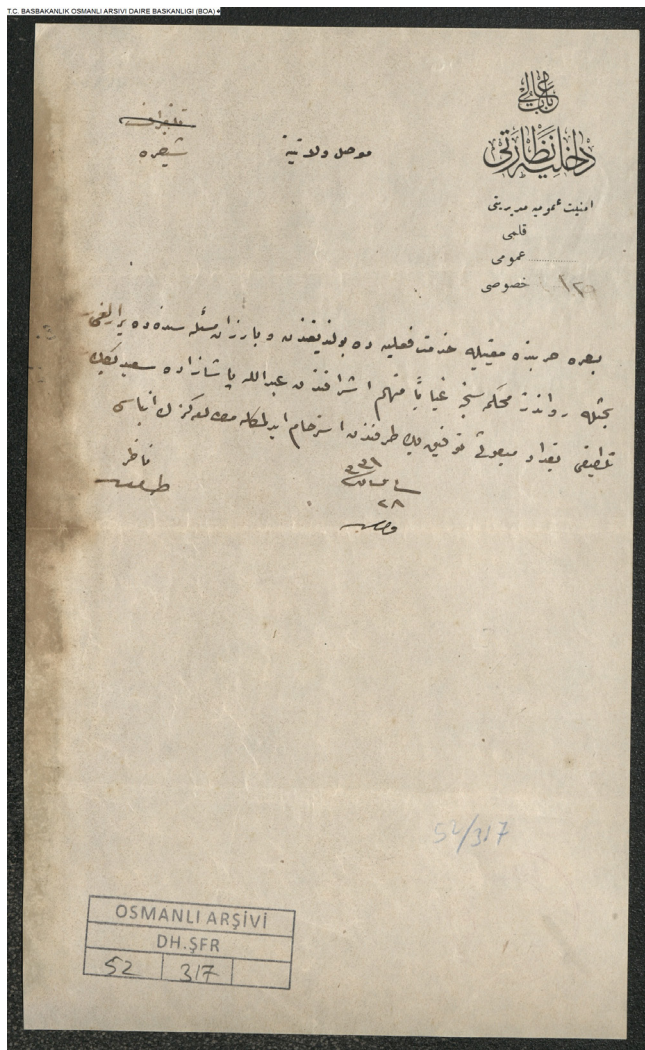 T.C. BASBAKANLIK OSMANLI ARSIVI DAIRE BASKANLIGI (BOA)
باب عالی
داخلیه نظارتی
امنیت عمومیه مدیریتی
قلمی
عمومی
خصوصی
تلغراف
شیفره
موصل ولایتنه
بصره حربنده معیتیله خدمت فعلیه ده بولندیغندن و بارزان مسئله سنده ده
رواندز محکمه سنجه غیاباً متهم اشرافدن عبدالله پاشا زاده سعید بك
بغداد مبعوثی توفیق بك طرفندن استرحام ایدلمكله
ناظر
طلعت
٢٨
52/317
OSMANLI ARŞİVİ
DH.ŞFR
52 317